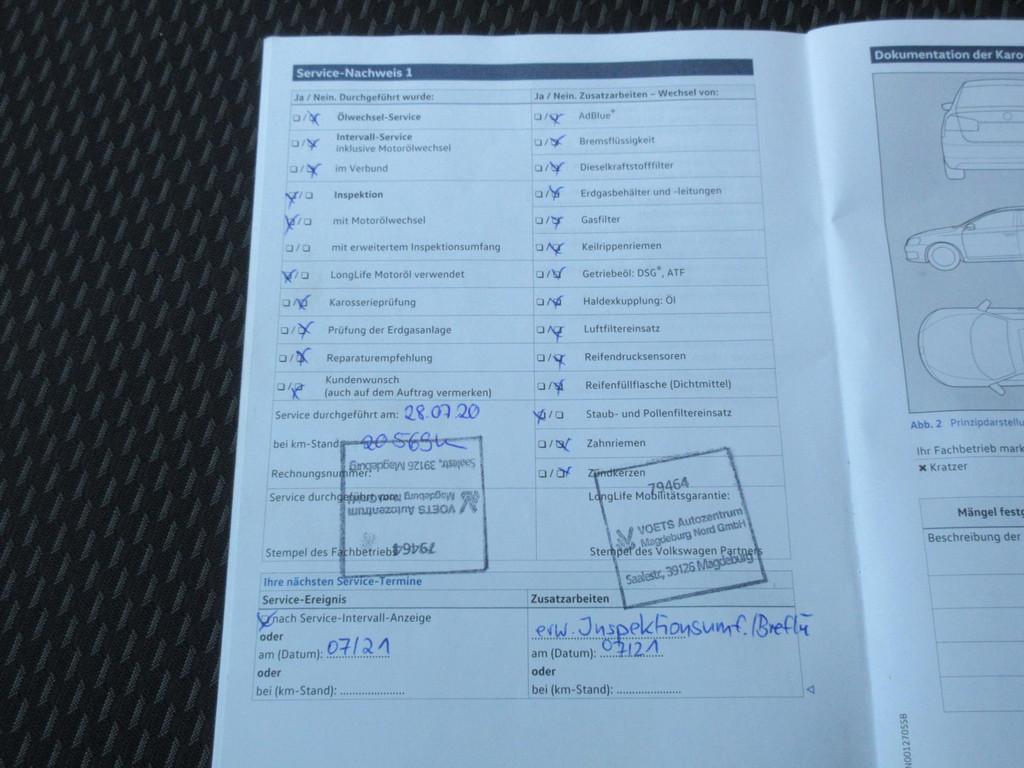 Service-Nachweis 1
Ja / Nein. Durchgeführt wurde:
Ölwechsel-Service
Intervall-Service
inklusive Motorölwechsel
im Verbund
Inspektion
mit Motorölwechsel
mit erweitertem Inspektionsumfang
LongLife Motoröl verwendet
Karosserieprüfung
Prüfung der Erdgasanlage
Reparaturempfehlung
Kundenwunsch
(auch auf dem Auftrag vermerken)
Service durchgeführt am: 28.07.20
bei km-Stand: 20569k
Rechnungsnummer:
Service durchgeführt von:
Stempel des Fachbetriebs
79464
VOETS Autozentrum
Magdeburg Nord GmbH
Saalestr, 39126 Magdeburg
Ja / Nein. Zusatzarbeiten – Wechsel von:
AdBlue®
Bremsflüssigkeit
Dieselkraftstofffilter
Erdgasbehälter und -leitungen
Gasfilter
Keilrippenriemen
Getriebeöl: DSG®, ATF
Haldexkupplung: Öl
Luftfiltereinsatz
Reifendrucksensoren
Reifenfüllflasche (Dichtmittel)
Staub- und Pollenfiltereinsatz
Zahnriemen
Zündkerzen
LongLife Mobilitätsgarantie:
79464
VOETS Autozentrum
Magdeburg Nord GmbH
Saalestr, 39126 Magdeburg
Stempel des Volkswagen Partners
Ihre nächsten Service-Termine
Service-Ereignis
nach Service-Intervall-Anzeige
oder
am (Datum): 07/21
oder
bei (km-Stand): ....................
Zusatzarbeiten
erw. Inspektionsumf./Breflü
am (Datum): 07/21
oder
bei (km-Stand): ....................
Dokumentation der Karo
Abb. 2 Prinzipdarstellu
Ihr Fachbetrieb mark
× Kratzer
Mängel festg
Beschreibung der
N00127055B